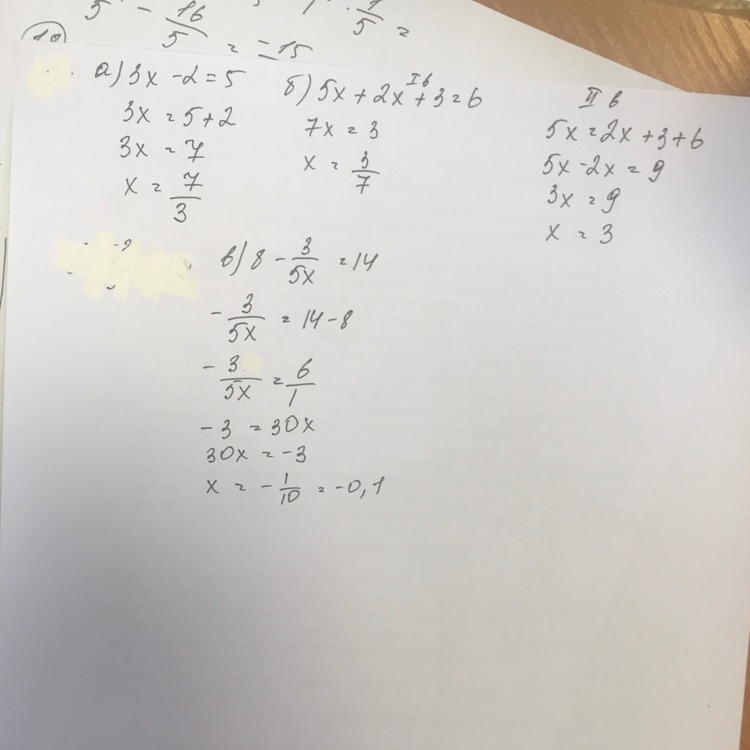 5 - 16/5 = -15
1/5 =
10
а) 3x - 2 = 5
3x = 5 + 2
3x = 7
x = 7/3
б) 5x + 2x + 3 = 6
I в
7x = 3
x = 3/7
II в
5x = 2x + 3 + 6
5x - 2x = 9
3x = 9
x = 3
в) 8 - 3/5x = 14
- 3/5x = 14 - 8
- 3/5x = 6/1
- 3 = 30x
30x = -3
x = - 1/10 = -0,1